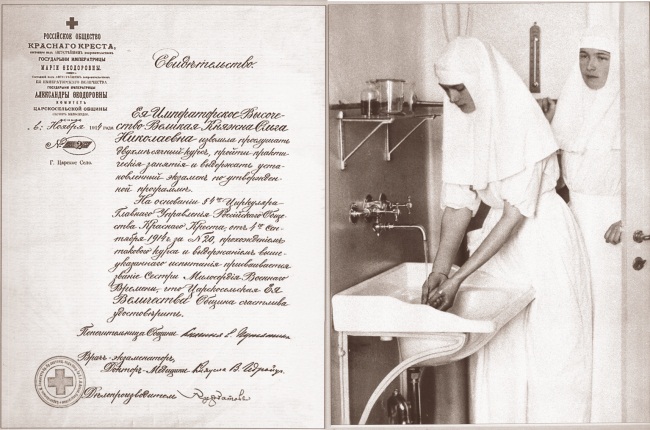 РОССІЙСКОЕ ОБЩЕСТВО
КРАСНАГО КРЕСТА,
ГОСУДАРЫНИ ИМПЕРАТРИЦЫ
МАРІИ ѲЕОДОРОВНЫ.
ЕЯ ИМПЕРАТОРСКАГО ВЕЛИЧЕСТВА
ГОСУДАРЫНИ ИМПЕРАТРИЦЫ
АЛЕКСАНДРЫ ѲЕОДОРОВНЫ
КОМИТЕТ
ЦАРСКОСЕЛЬСКОЙ ОБЩИНЫ
Ноября 1914 года
№
Г. Царское Село.
Свидѣтельство.
Ея Императорское Высоче-
ство Великая Княжна Ольга
Николаевна изволила прослушать
двухмѣсячный курсъ, пройти практи-
ческія занятія и выдержать уста-
новленный экзаменъ по утвержден-
ной программѣ.
На основаніи § 4го Циркуляра
Главнаго Управленія Россійскаго Обще-
ства Краснаго Креста, отъ 4го Сен-
тября 1914г за № 20, прохожденіемъ
такового курса и выдержаніемъ выше-
указаннаго испытанія присваивается
званіе Сестры Милосердія Военнаго
Времени, что Царскосельская Ея
Величества Община счастлива
удостовѣрить.
Попечительница Общины
Врачъ-экзаменаторъ,
Докторъ Медицины Княжна В. Гедройцъ
Дѣлопроизводитель